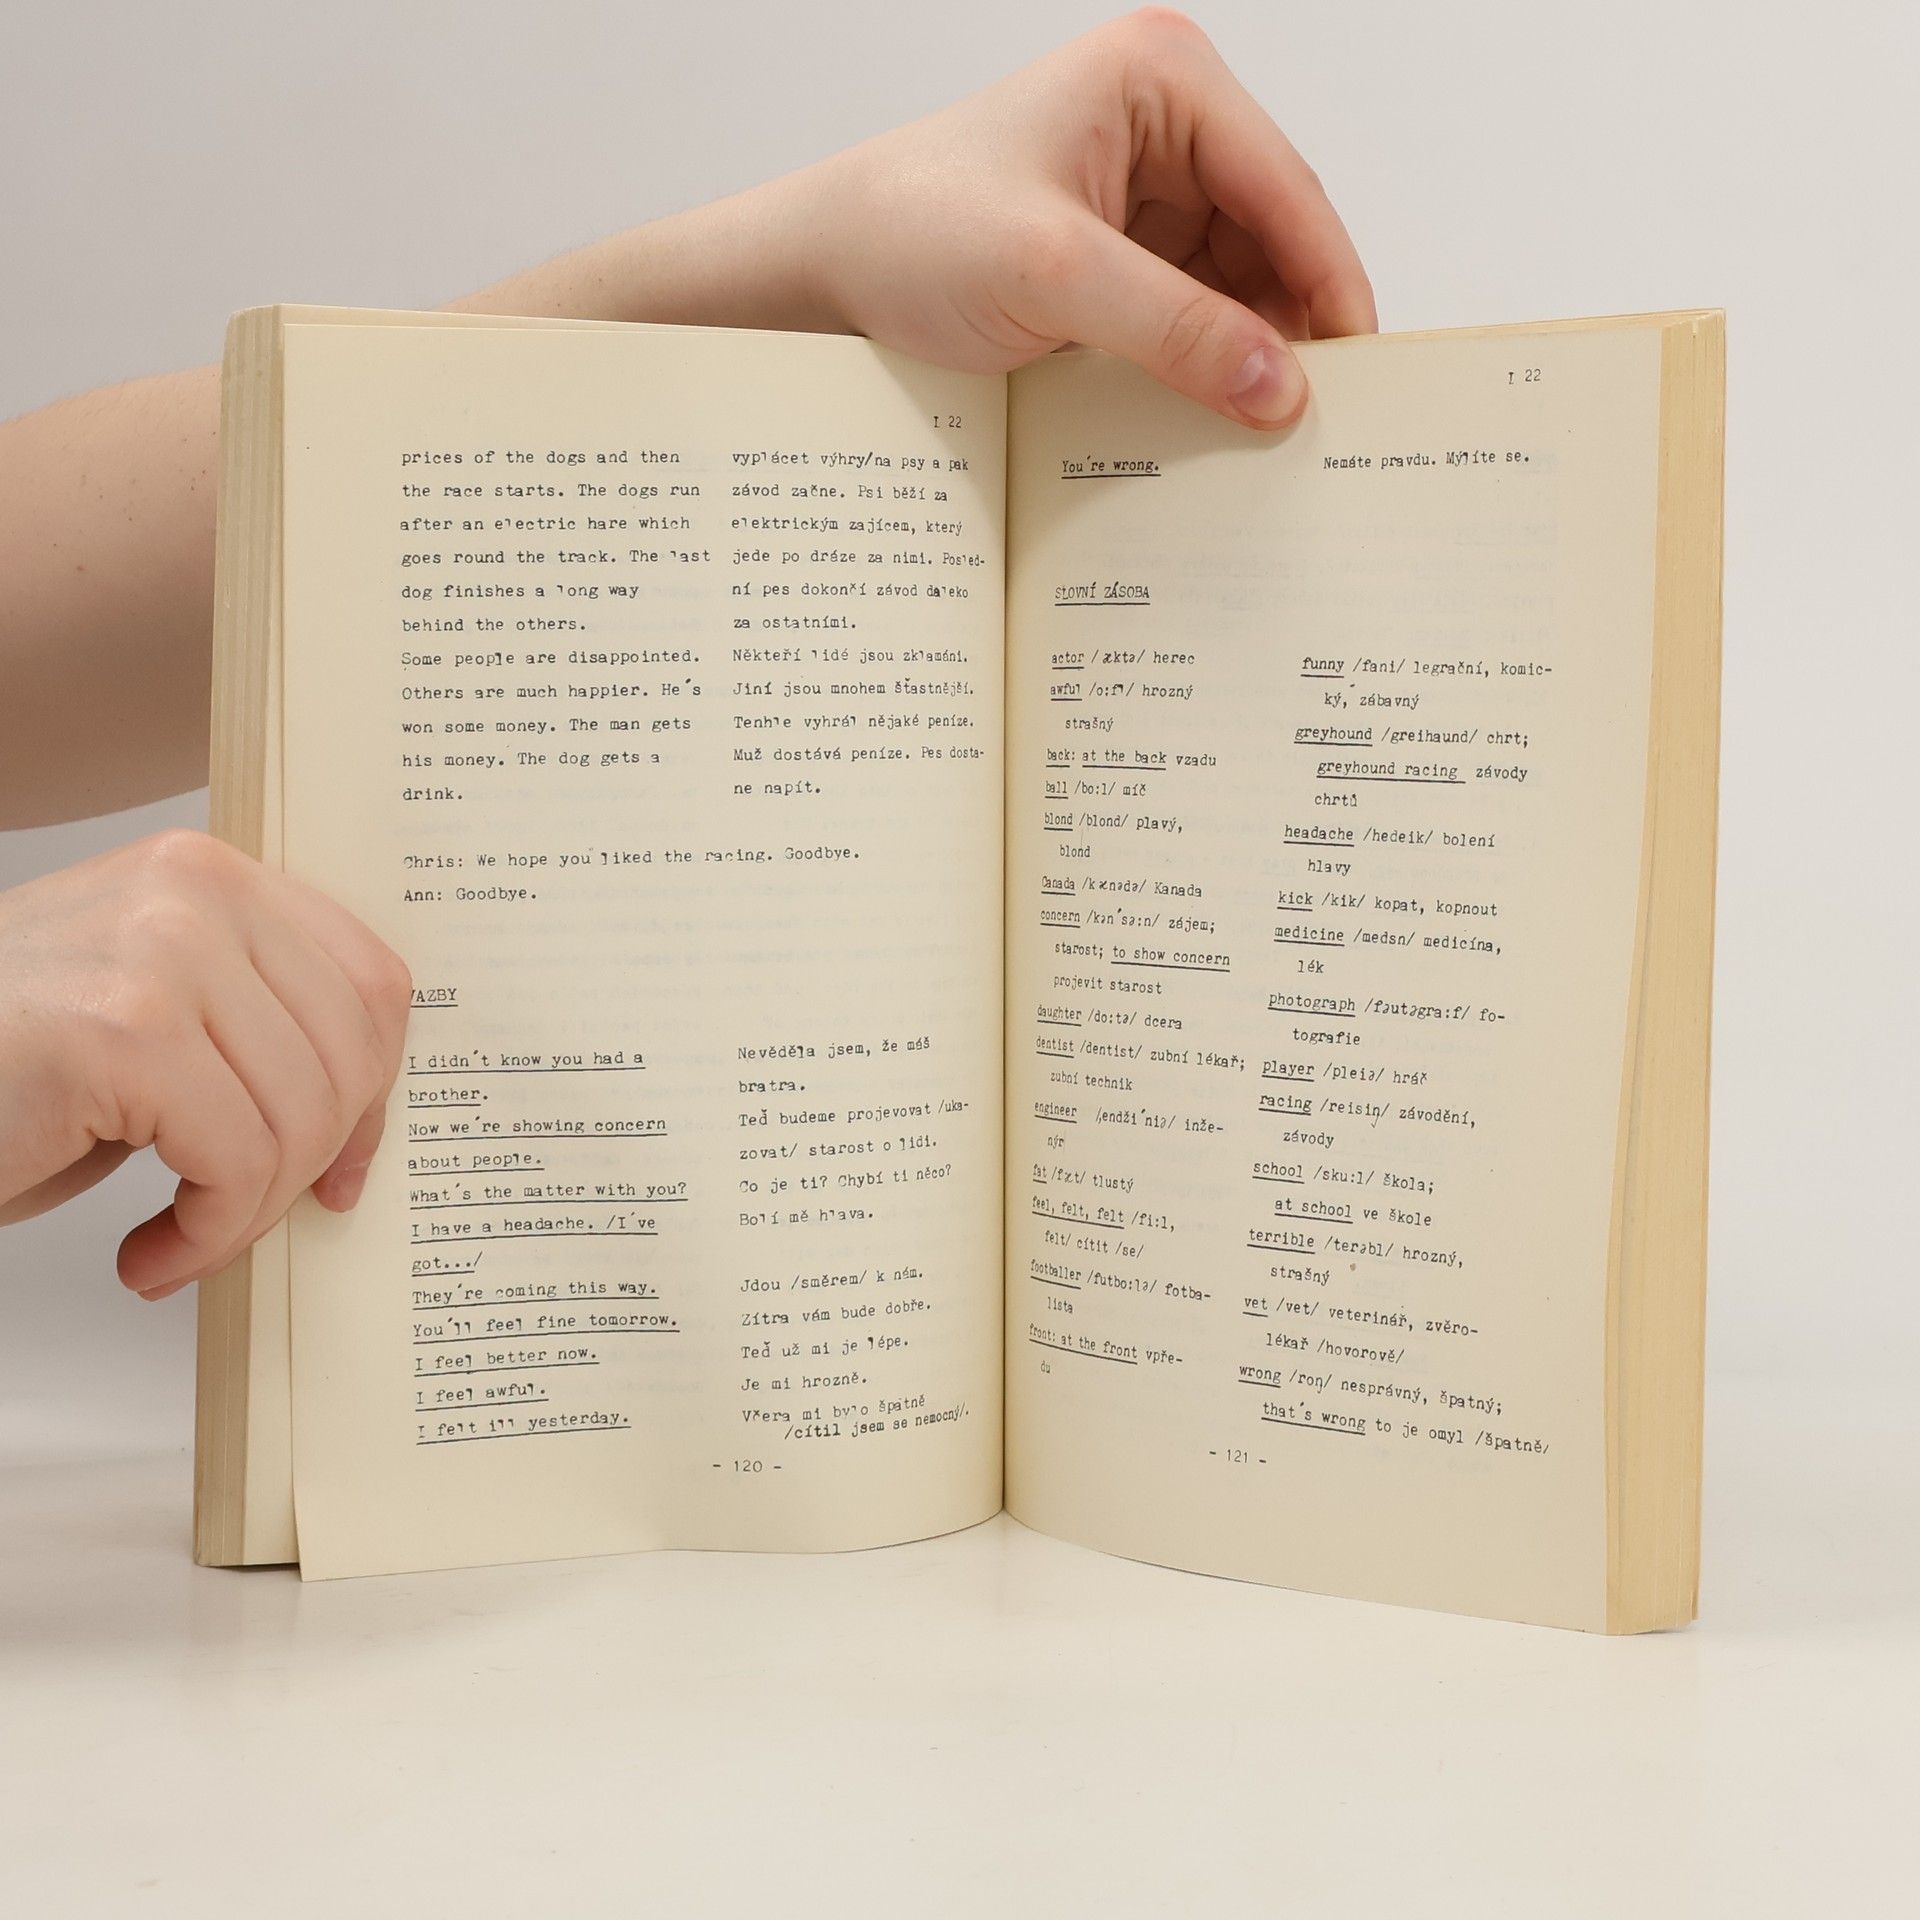 I 22
prices of the dogs and then
the race starts. The dogs run
after an electric hare which
goes round the track. The last
dog finishes a long way
behind the others.
Some people are disappointed.
Others are much happier. He´s
won some money. The man gets
his money. The dog gets a
drink.
vyplácet výhry/na psy a pak
závod začne. Psi běží za
elektrickým zajícem, který
jede po dráze za nimi. Posled-
ní pes dokončí závod daleko
za ostatními.
Někteří lidé jsou zklamáni.
Jiní jsou mnohem šťastnější.
Tenhle vyhrál nějaké peníze.
Muž dostává peníze. Pes dosta-
ne napít.
Chris: We hope you liked the racing. Goodbye.
Ann: Goodbye.
VAZBY
I didn´t know you had a
brother.
Now we´re showing concern
about people.
What´s the matter with you?
I have a headache. /I´ve
got.../
They´re coming this way.
You´ll feel fine tomorrow.
I feel better now.
I feel awful.
I felt ill yesterday.
Nevěděla jsem, že máš
bratra.
Teď budeme projevovat /uka-
zovat/ starost o lidi.
Co je ti? Chybí ti něco?
Bolí mě hlava.
Jdou /směrem/ k nám.
Zítra vám bude dobře.
Teď už mi je lépe.
Je mi hrozně.
Včera mi bylo špatně
/cítil jsem se nemocný/.
- 120 -
I 22
You´re wrong.
Nemáte pravdu. Mýlíte se.
SLOVNÍ ZÁSOBA
actor /æktə/ herec
awful /o:fl/ hrozný
strašný
back: at the back vzadu
ball /bo:l/ míč
blond /blond/ plavý,
blond
Canada /kænədə/ Kanada
concern /kən´sə:n/ zájem;
starost; to show concern
projevit starost
daughter /do:tə/ dcera
dentist /dentist/ zubní lékař;
zubní technik
engineer /,endži´niə/ inže-
nýr
fat /fæt/ tlustý
feel, felt, felt /fi:l,
felt/ cítit /se/
footballer /futbo:lə/ fotba-
lista
front: at the front vpře-
du
funny /fani/ legrační, komic-
ký, zábavný
greyhound /greihaund/ chrt;
greyhound racing závody
chrtů
headache /hedeik/ bolení
hlavy
kick /kik/ kopat, kopnout
medicine /medsn/ medicína,
lék
photograph /fəutəgra:f/ fo-
tografie
player /pleiə/ hráč
racing /reisiŋ/ závodění,
závody
school /sku:l/ škola;
at school ve škole
terrible /terəbl/ hrozný,
strašný
vet /vet/ veterinář, zvěro-
lékař /hovorově/
wrong /roŋ/ nesprávný, špatný;
that´s wrong to je omyl /špatně/
- 121 -